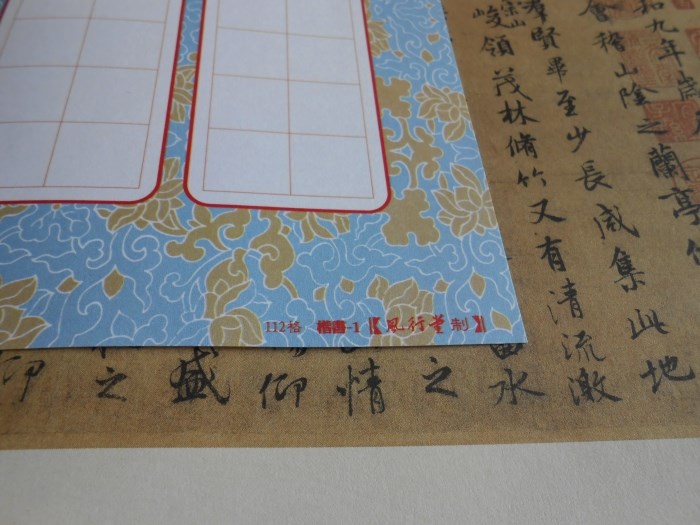 和九年歲
會稽山陰之蘭亭脩
羣賢畢至少長咸集此地
崇山峻領茂林脩竹又有清流激
水
之
情
仰
盛
之
仰
112格 楷書-1【風行堂制】